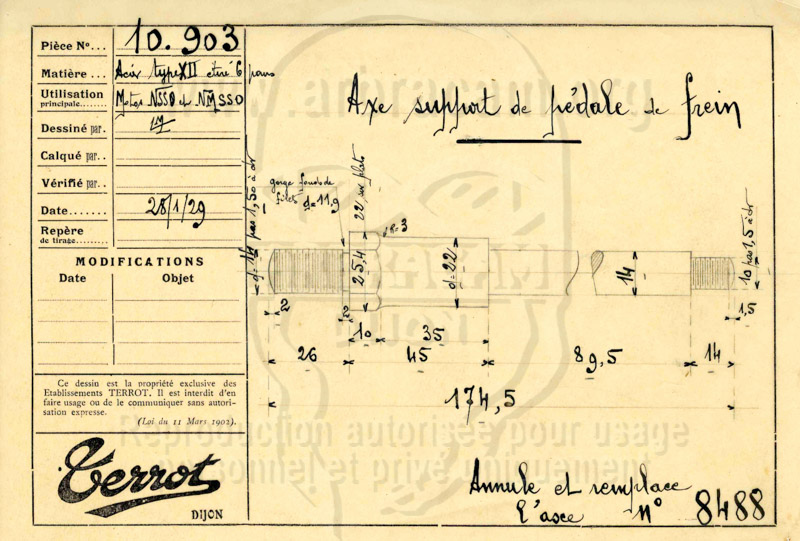 Pièce Nº... 10.903
Matière ... Acier type XII étiré 6 pans
Utilisation
principale....... Motos NSSO et NMSSO
Dessiné par.
Calqué par..
Vérifié par..
Date....... 28/1/29
Repère
de tirage.......
MODIFICATIONS
Date Objet
Ce dessin est la propriété exclusive des
Etablissements TERROT. Il est interdit d'en
faire usage ou de le communiquer sans autori-
sation expresse.
(Loi du 11 Mars 1902).
Terrot
DIJON
Axe support de pédale de frein
gorge fond de
filets d=11,9
pas 1,50 à dr
22 sur plats
R=3
25,4
d=22
14
10 pas 1,5 à dr
2
2
1,5
10 35
26 45 89,5 14
174,5
Annule et remplace
l'axe Nº 8488
www.arbracam.org
ARBRACAM
DIJON
Reproduction autorisée pour usage
personnel et privé uniquement